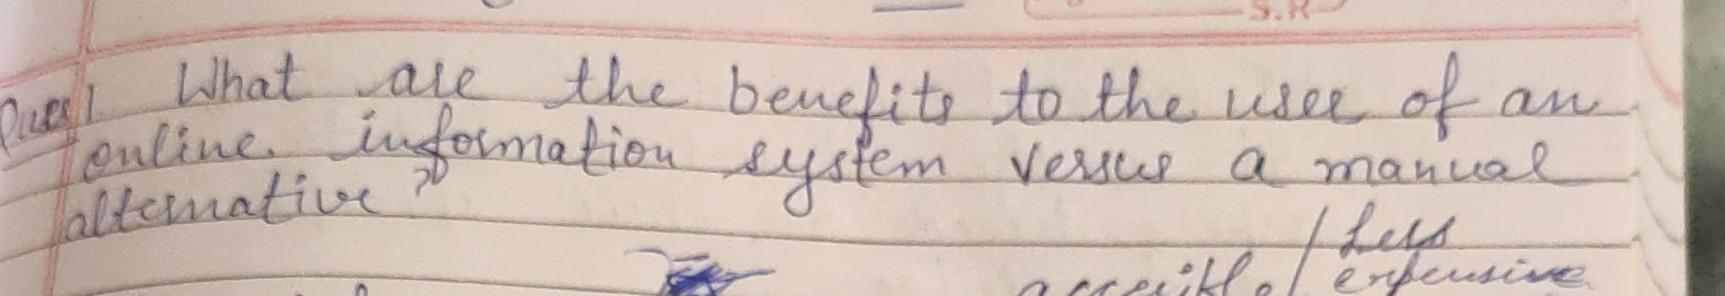 S.R
Ques 1. What are the benefits to the user of an
online information system versus a manual
alternative?
/ Less
accessible / expensive